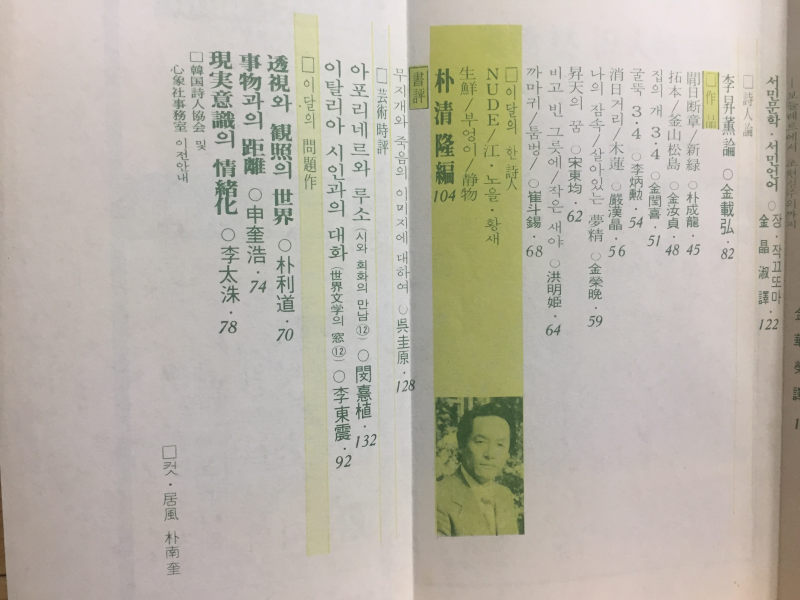 서민문학·서민언어 ○ 장·작끄또마
金晶淑 譯·122
□詩人論
李昇薰論 ○ 金載弘·82
□作品
閏日断章/新緑 ○朴成龍·45
拓本/釜山松島 ○金汝貞·48
집의 개 3·4 ○金閏喜·51
굴뚝 3·4 ○李炳勳·54
消日거리/木蓮 ○嚴漢晶·56
나의 잠속/살아있는 夢精 ○金榮晩·59
昇天의 꿈 ○宋東均·62
비고 빈 그릇에/작은 새야 ○洪明姬·64
까마귀/툼벙/ ○崔斗錫·68
□이달의 한 詩人
NUDE/江·노을·황새
生鮮/부엉이/靜物
朴清隆編 104
書評
무지개와 죽음의 이미지에 대하여 ○吳圭原·128
□芸術時評
아포리네르와 루소 (시와 회화의 만남⑫) ○ 閔憙植·132
이탈리아 시인과의 대화 (世界文学의 窓⑫) ○ 李東震·92
□이달의 問題作
透視와 観照의 世界 ○朴利道·70
事物과의 距離 ○申奎浩·74
現実意識의 情緖化 ○李太洙·78
□韓国詩人協会 및
心象社事務室 이전안내
□컷·居風 朴南奎